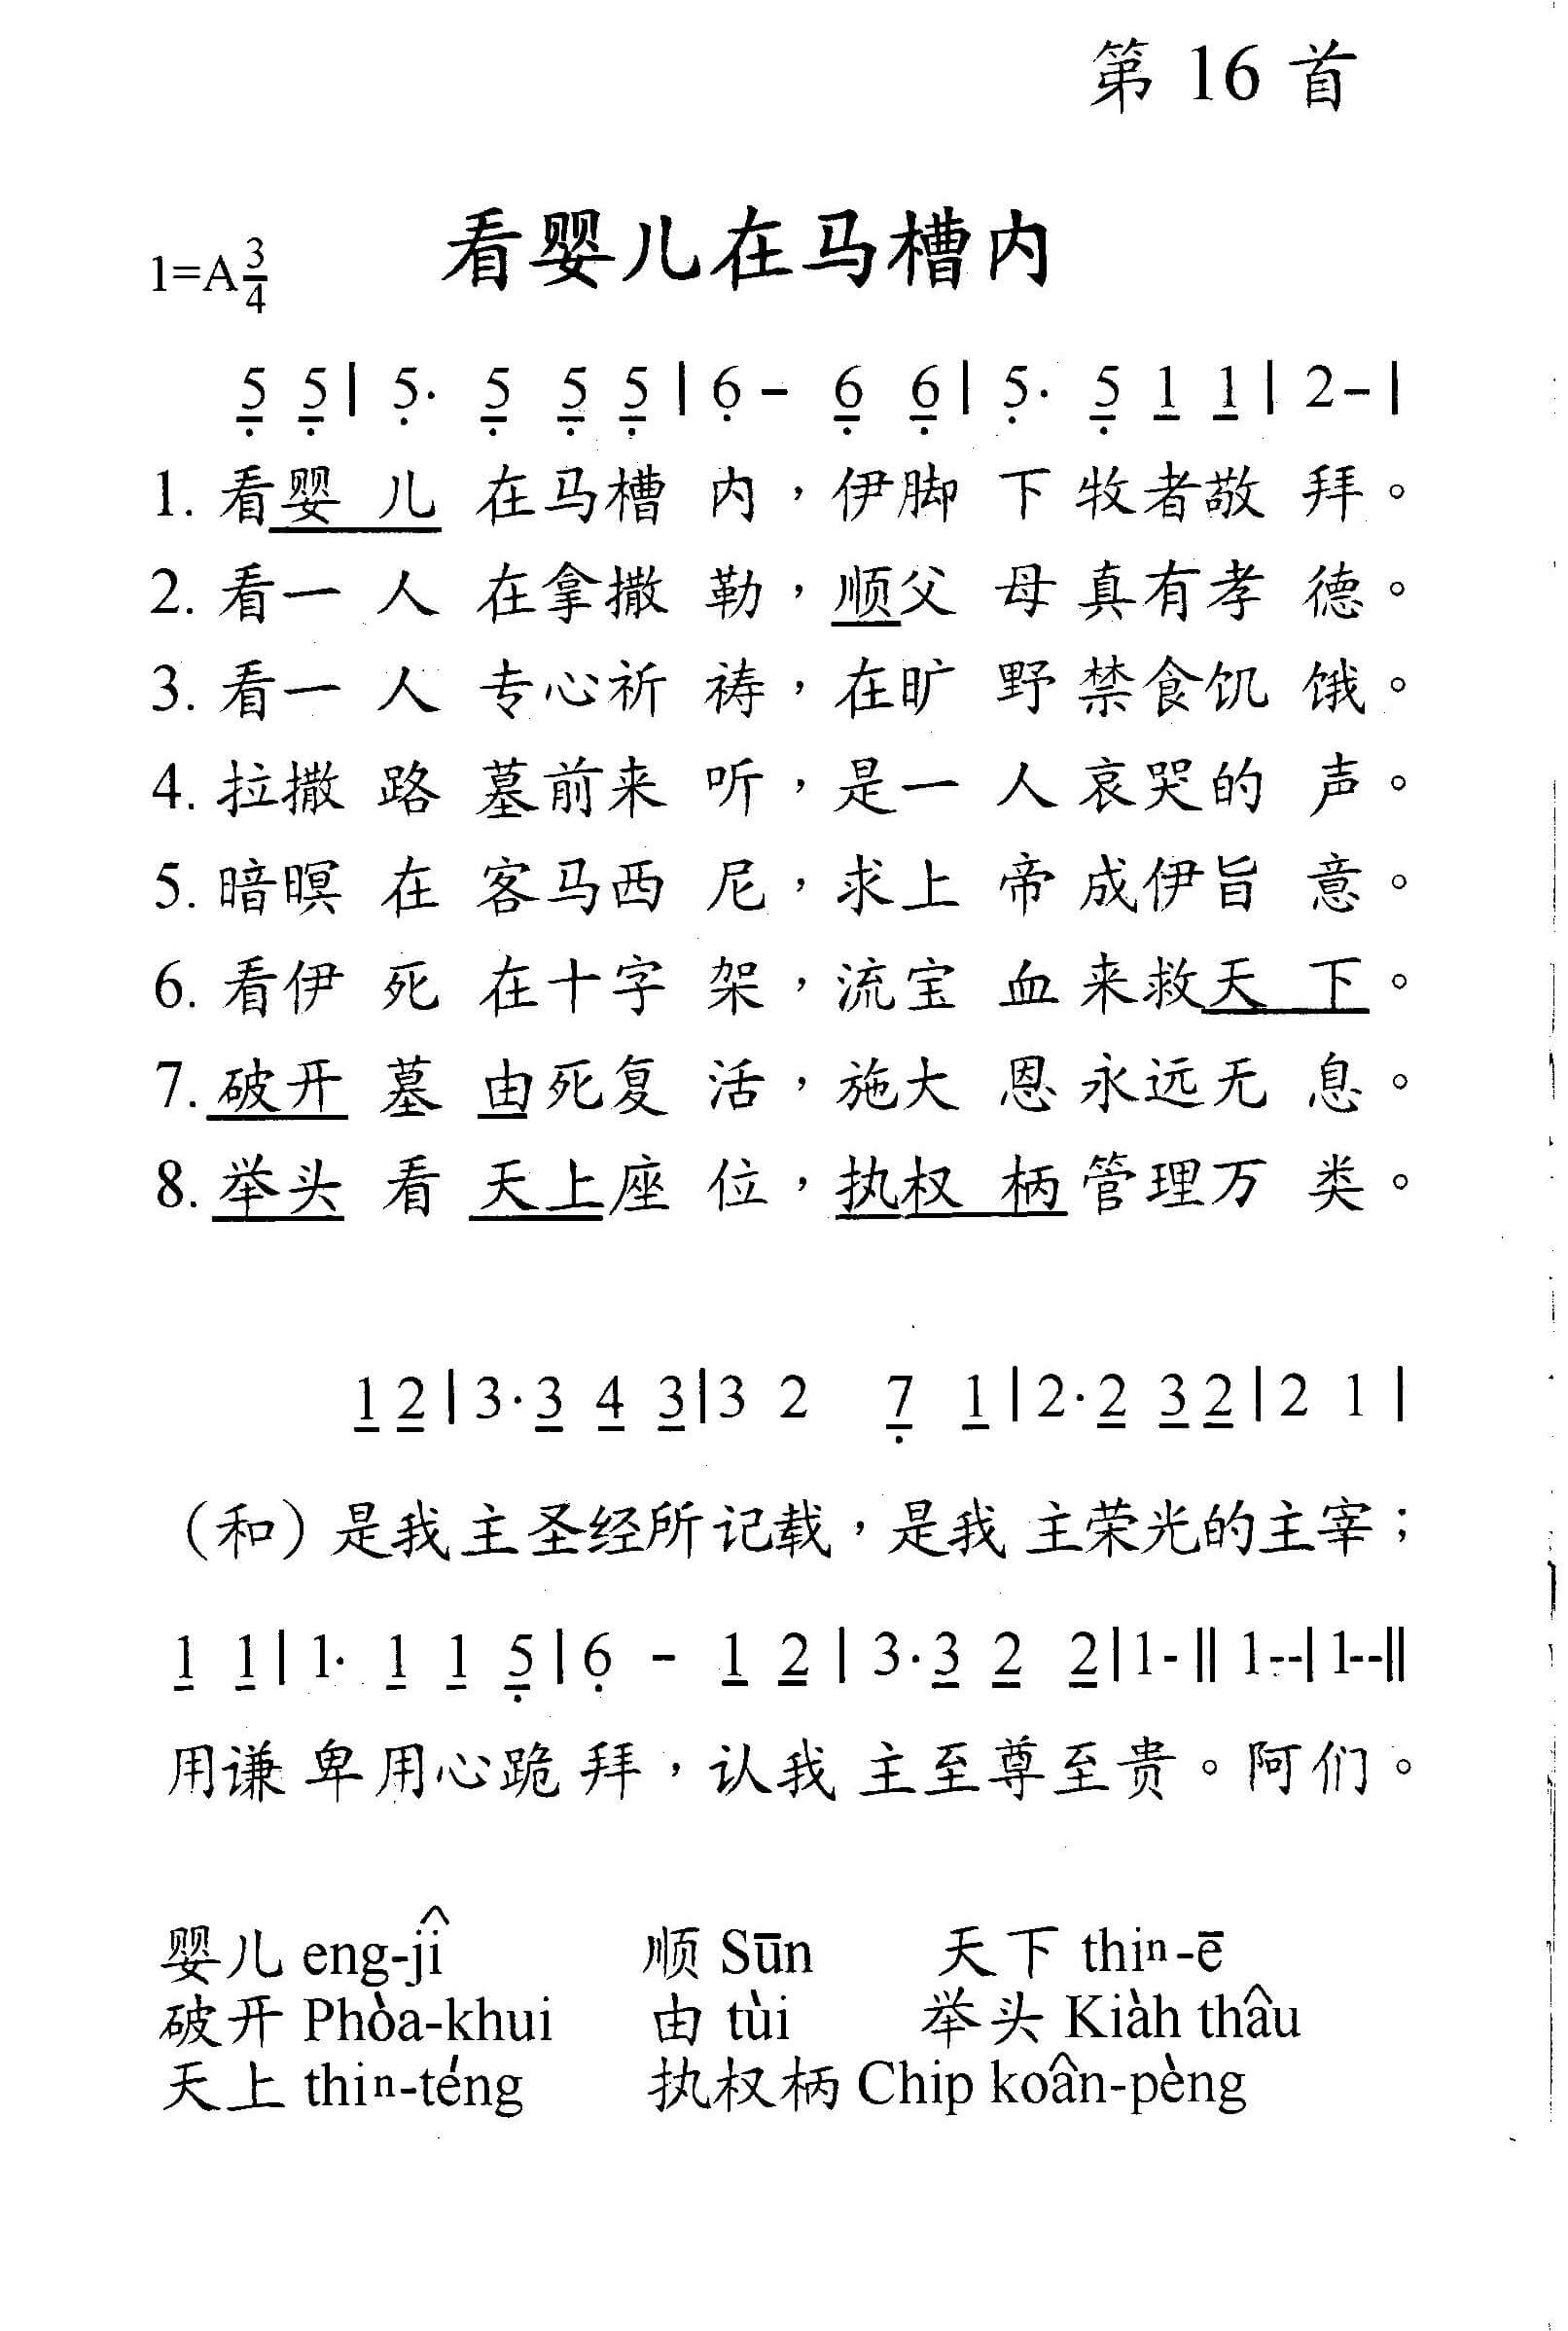 第 16 首
看婴儿在马槽内
1=A 3/4
5 5 | 5· 5 5 5 | 6 – 6 6 | 5· 5 1 1 | 2– |
1. 看婴儿在马槽内，伊脚下牧者敬拜。
2. 看一人在拿撒勒，顺父母真有孝德。
3. 看一人专心祈祷，在旷野禁食饥饿。
4. 拉撒路墓前来听，是一人哀哭的声。
5. 暗暝在客马西尼，求上帝成伊旨意。
6. 看伊死在十字架，流宝血来救天下。
7. 破开墓由死复活，施大恩永远无息。
8. 举头看天上座位，执权柄管理万类。
1 2 | 3·3 4 3 | 3 2 7 1 | 2·2 3 2 | 2 1 |
（和）是我主圣经所记载，是我主荣光的主宰；
1 1 | 1· 1 1 5 | 6 – 1 2 | 3·3 2 2 | 1- ‖ 1--| 1--‖
用谦卑用心跪拜，认我主至尊至贵。阿们。
婴儿 eng-jî 顺 Sūn 天下 thiⁿ-ē
破开 Phòa-khui 由 tùi 举头 Kiàh thâu
天上 thiⁿ-téng 执权柄 Chip koân-pèng